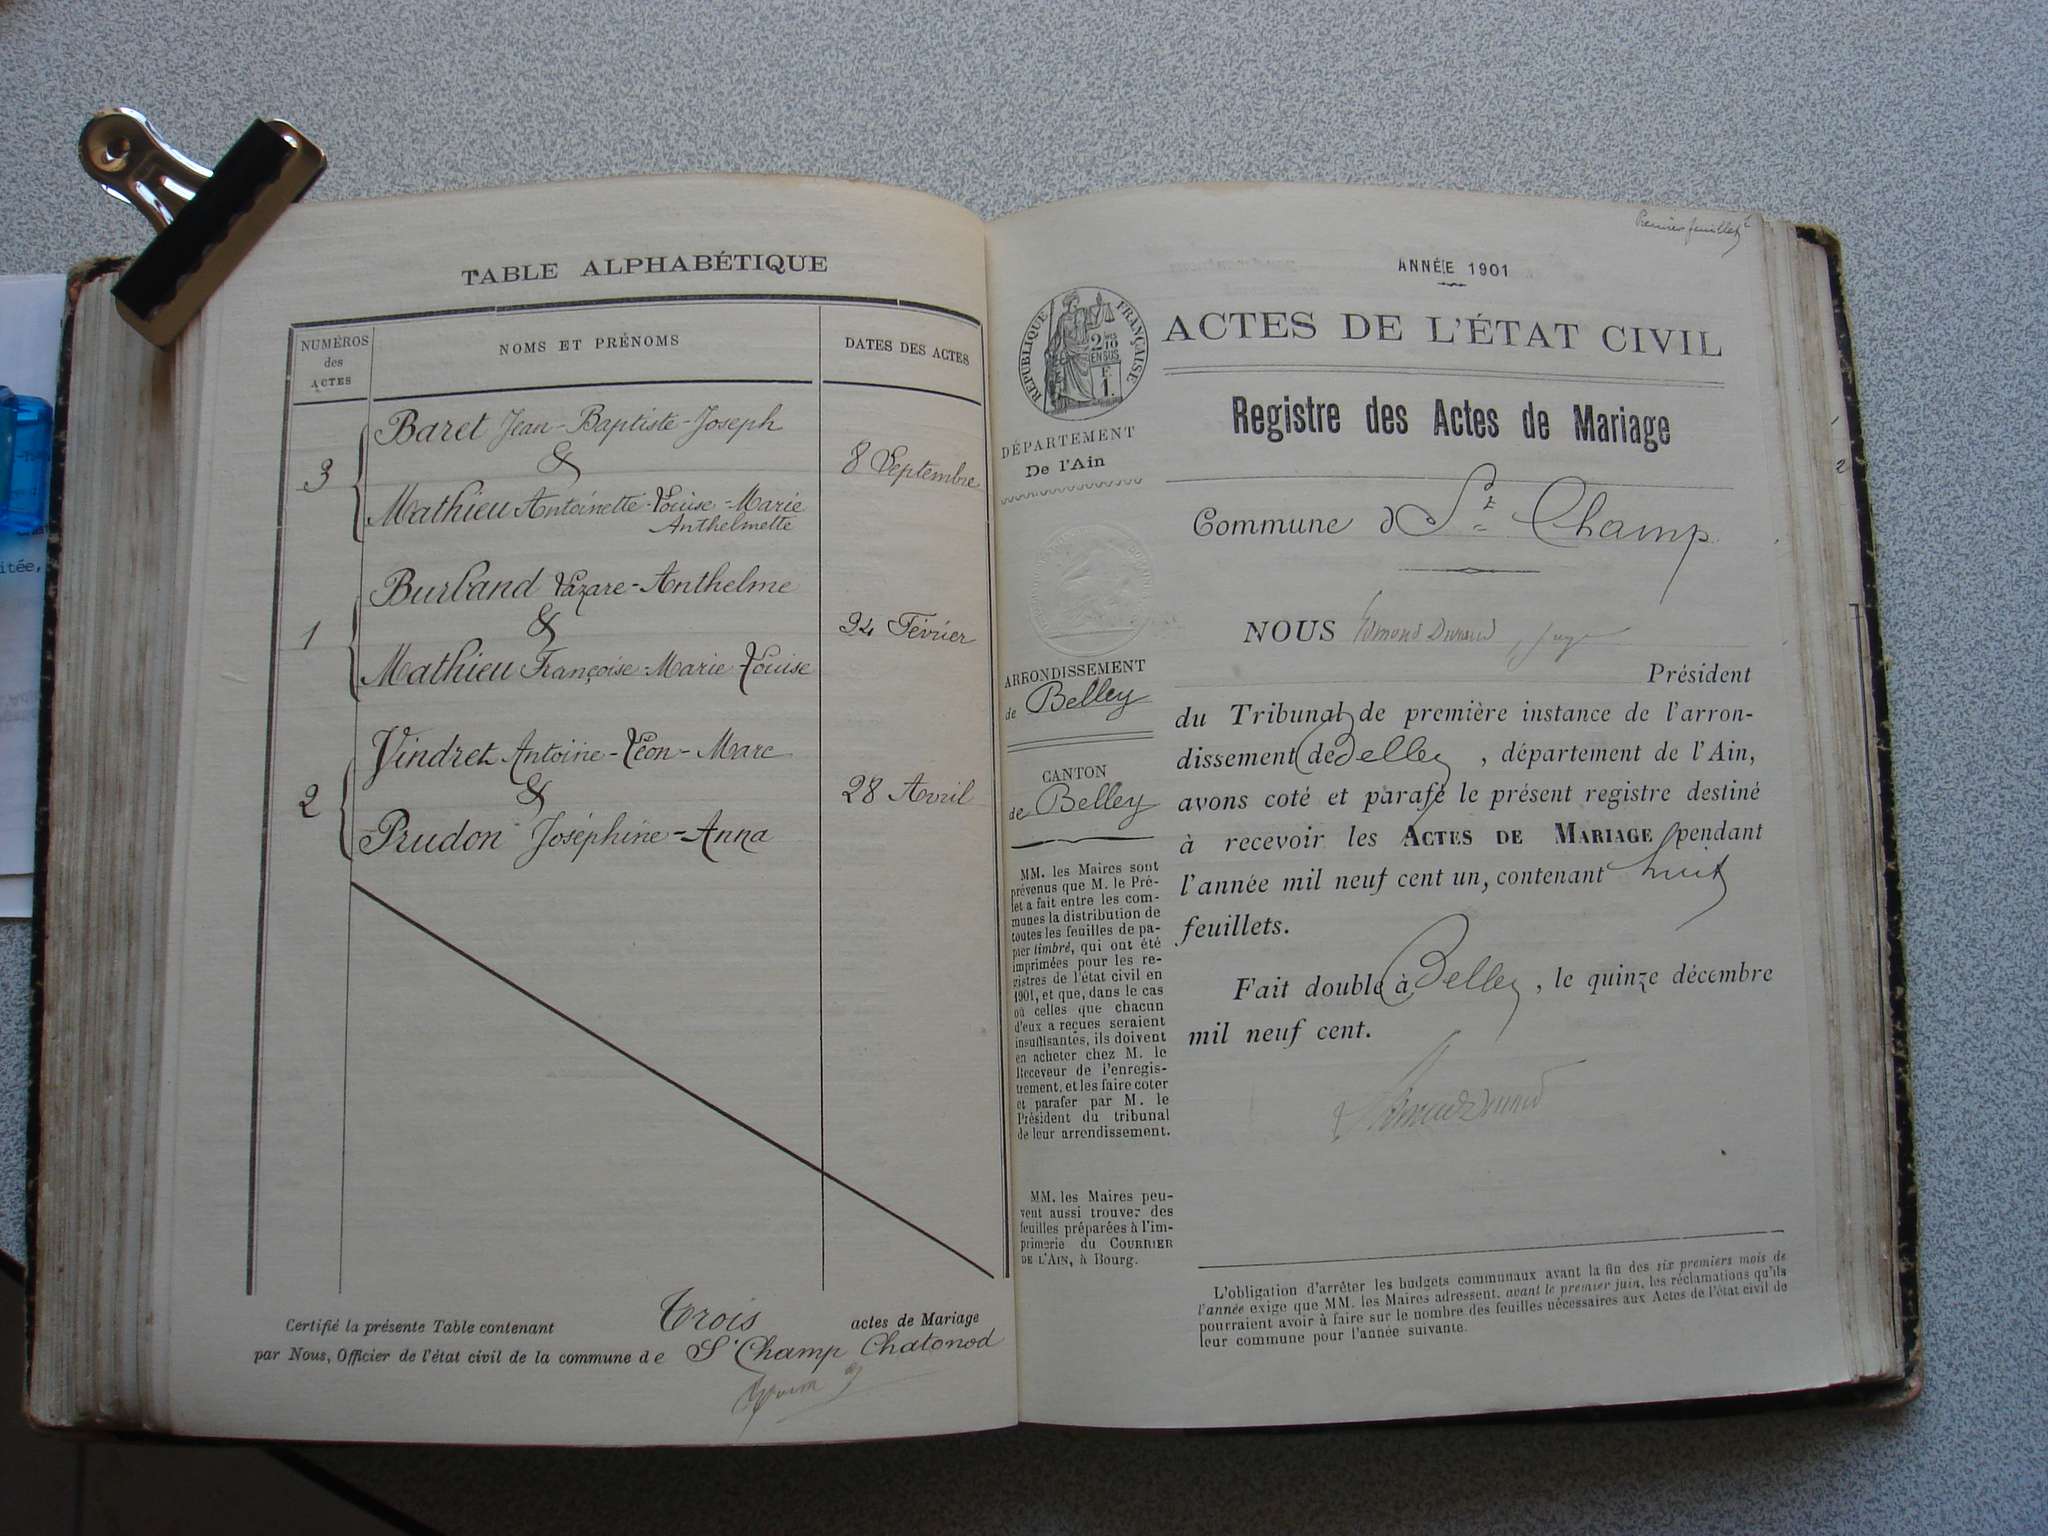 TABLE ALPHABÉTIQUE
NUMÉROS
des
ACTES
NOMS ET PRÉNOMS
DATES DES ACTES
Baret Jean-Baptiste-Joseph
&
3
8 Septembre
Mathieu Antoinette-Louise-Marie
Anthelmette
Burband Lazare-Anthelme
&
1
24 Février
Mathieu Françoise-Marie-Louise
Vindret Antoine-Léon-Marc
&
2
28 Avril
Prudon Joséphine-Anna
Certifié la présente Table contenant Trois actes de Mariage
par Nous, Officier de l'état civil de la commune de St Champ Chatonod
Premier feuillet
ANNÉE 1901
RÉPUBLIQUE FRANÇAISE
2 10
EN SUS
F.
1.
ACTES DE L'ÉTAT CIVIL
Registre des Actes de Mariage
DÉPARTEMENT
De l'Ain
Commune d St Champ
NOUS Edmond Durand juge
Président
ARRONDISSEMENT
de Belley
CANTON
de Belley
du Tribunal de première instance de l'arron-
dissement de Belley, département de l'Ain,
avons coté et parafé le présent registre destiné
à recevoir les ACTES DE MARIAGE pendant
l'année mil neuf cent un, contenant huit
feuillets.
Fait double à Belley, le quinze décembre
mil neuf cent.
MM. les Maires sont
prévenus que M. le Pré-
fet a fait entre les com-
munes la distribution de
toutes les feuilles de pa-
pier timbré, qui ont été
imprimées pour les re-
gistres de l'état civil en
1901, et que, dans le cas
où celles que chacun
d'eux a reçues seraient
insuffisantes, ils doivent
en acheter chez M. le
Receveur de l'enregis-
trement, et les faire coter
et parafer par M. le
Président du tribunal
de leur arrondissement.
MM. les Maires peu-
vent aussi trouver des
feuilles préparées à l'im-
primerie du COURRIER
DE L'AIN, à Bourg.
L'obligation d'arrêter les budgets communaux avant la fin des six premiers mois de
l'année exige que MM. les Maires adressent, avant le premier juin, les réclamations qu'ils
pourraient avoir à faire sur le nombre des feuilles nécessaires aux Actes de l'état civil de
leur commune pour l'année suivante.
itée,